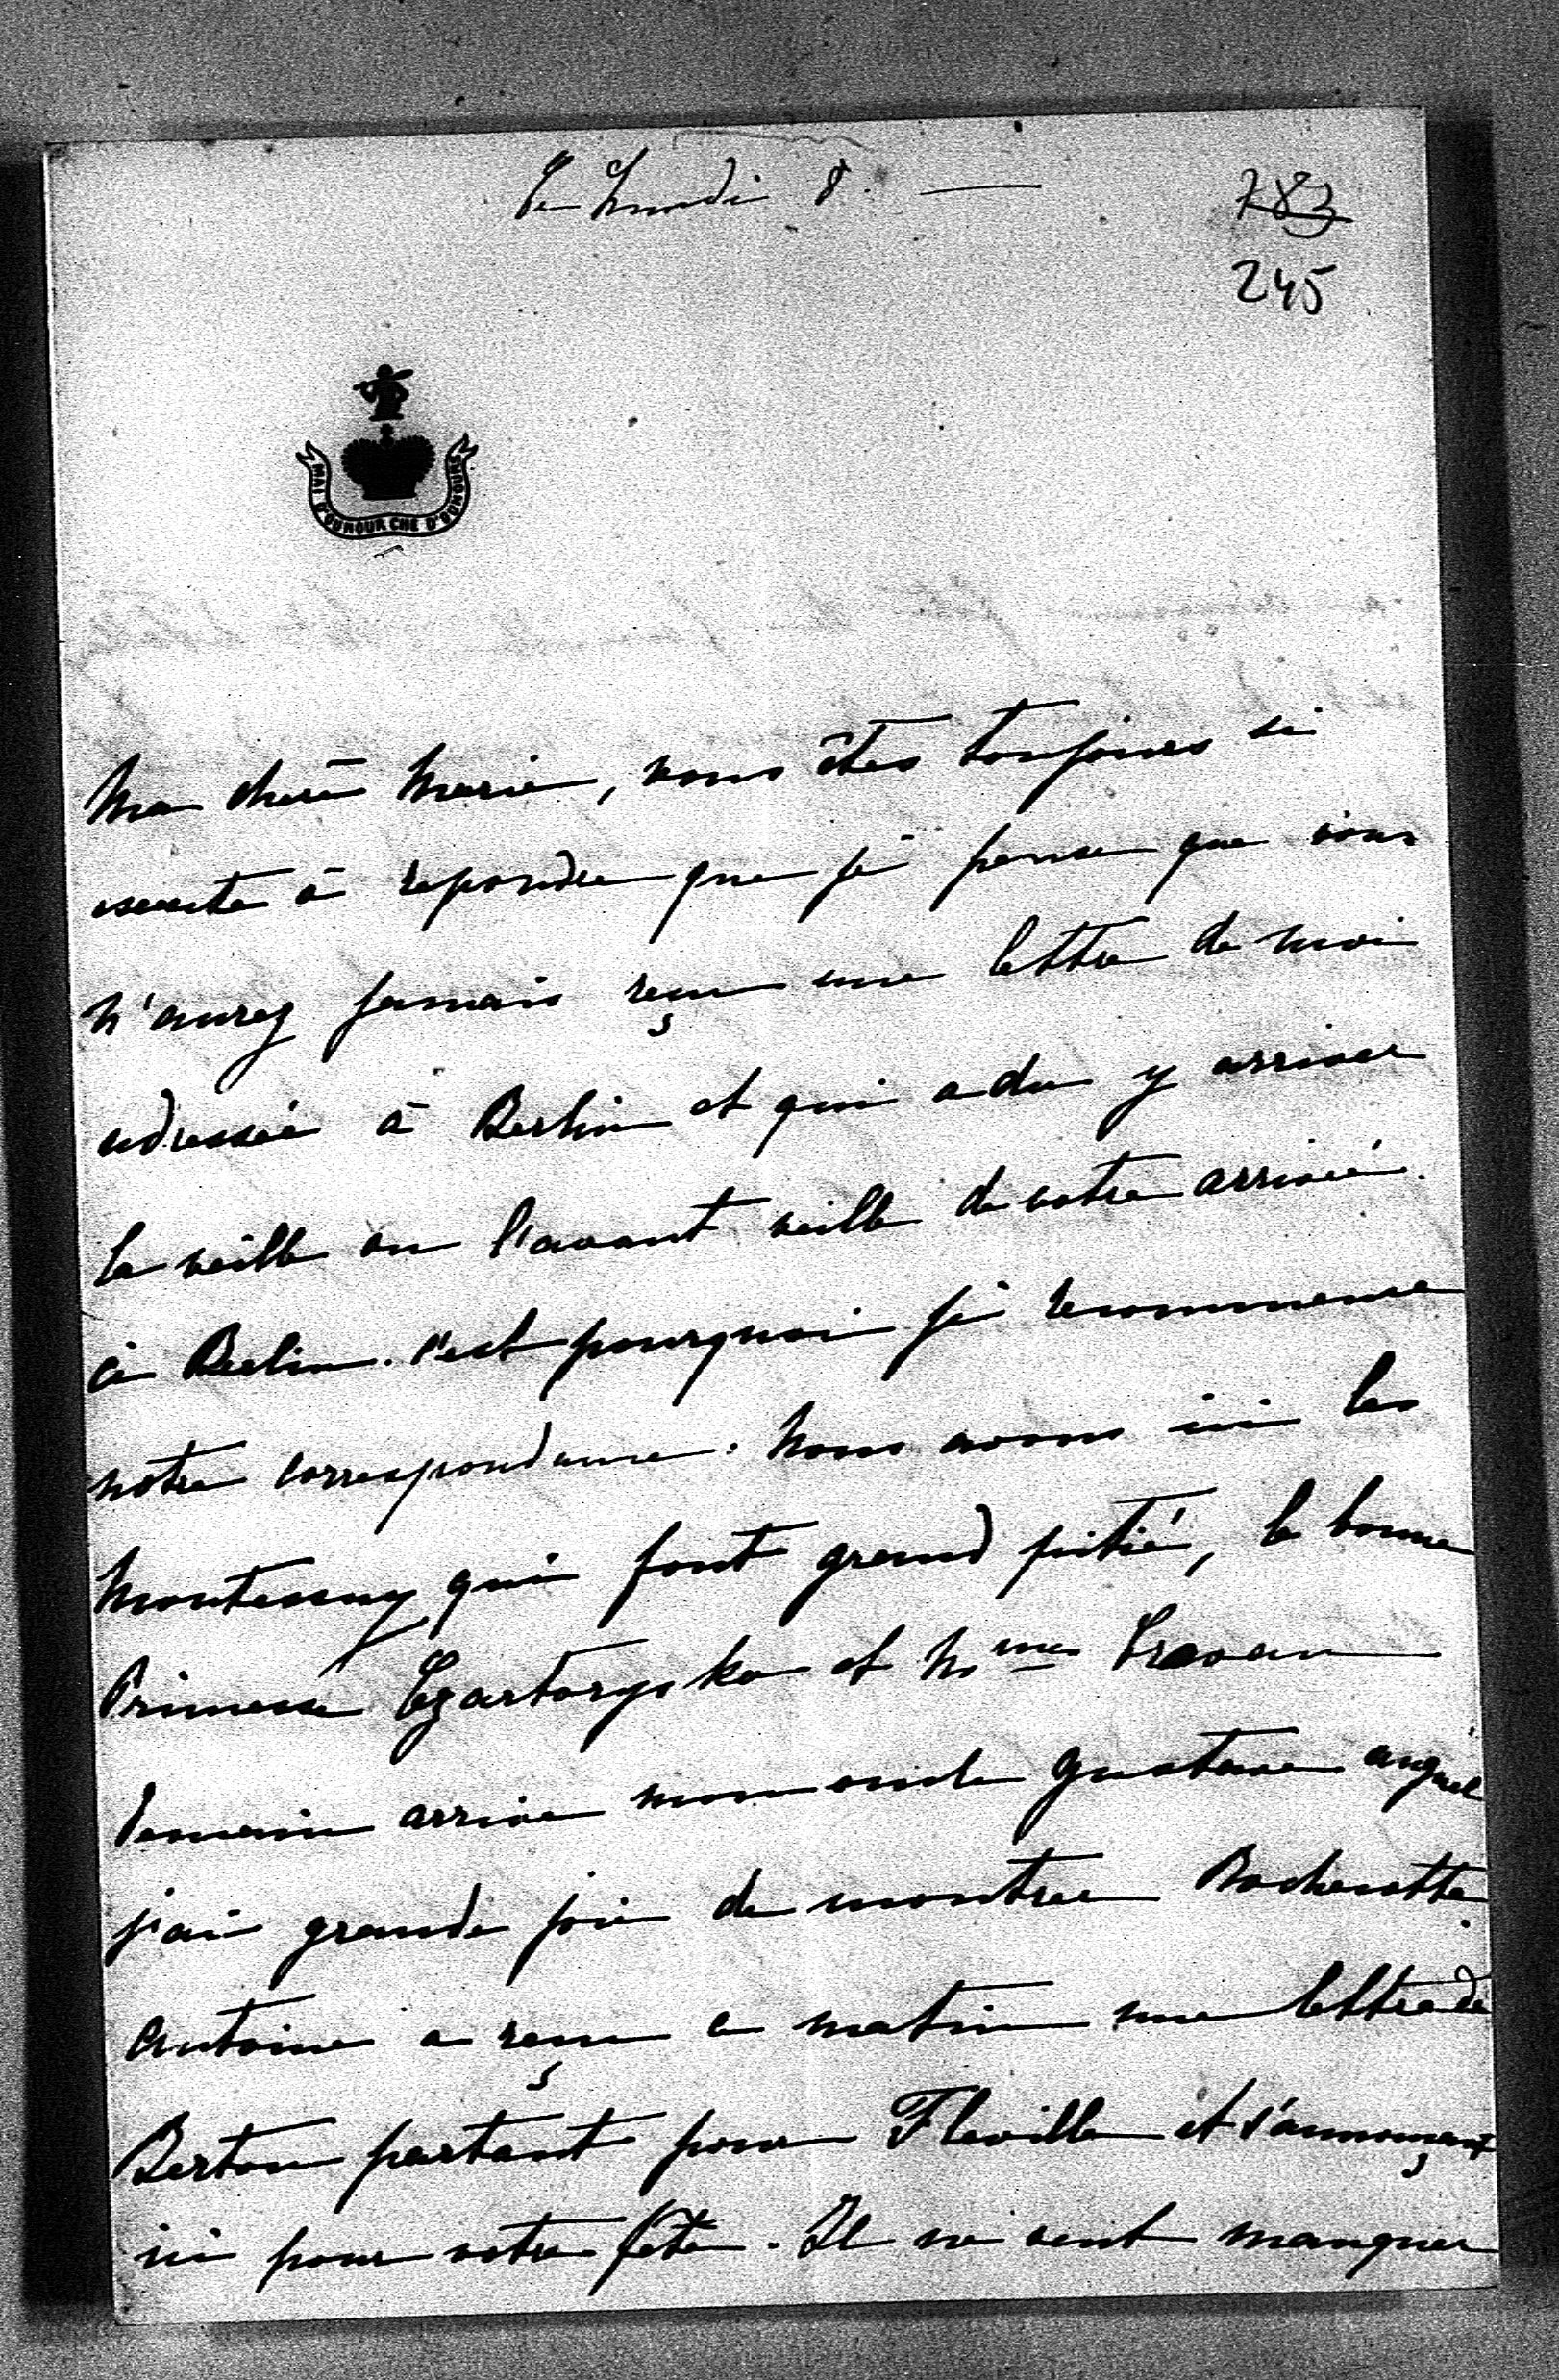 Le Lundi 8.
783
245
MAI D'OUNOUR CHE D'OUNOUR
Ma chère Marie, vous êtes toujours si
exacte à repondre que je pense que vous
n'aurez jamais reçu une lettre de moi
adressée à Berlin et qui a du y arriver
la veille ou l'avant veille de votre arrivée
à Berlin. C'est pourquoi je recommence
notre correspondance. Nous avons ici les
Montessuy qui font grand pitié, la bonne
Princesse Czartoryska et Mme
Demain arrive mon oncle Gustave auquel
j'ai grande joie de montrer Rochecotte.
Antoine a reçu ce matin une lettre de
Berton partant pour Fleville et s'annonçant
ici pour votre fête. Il ne veut manquer